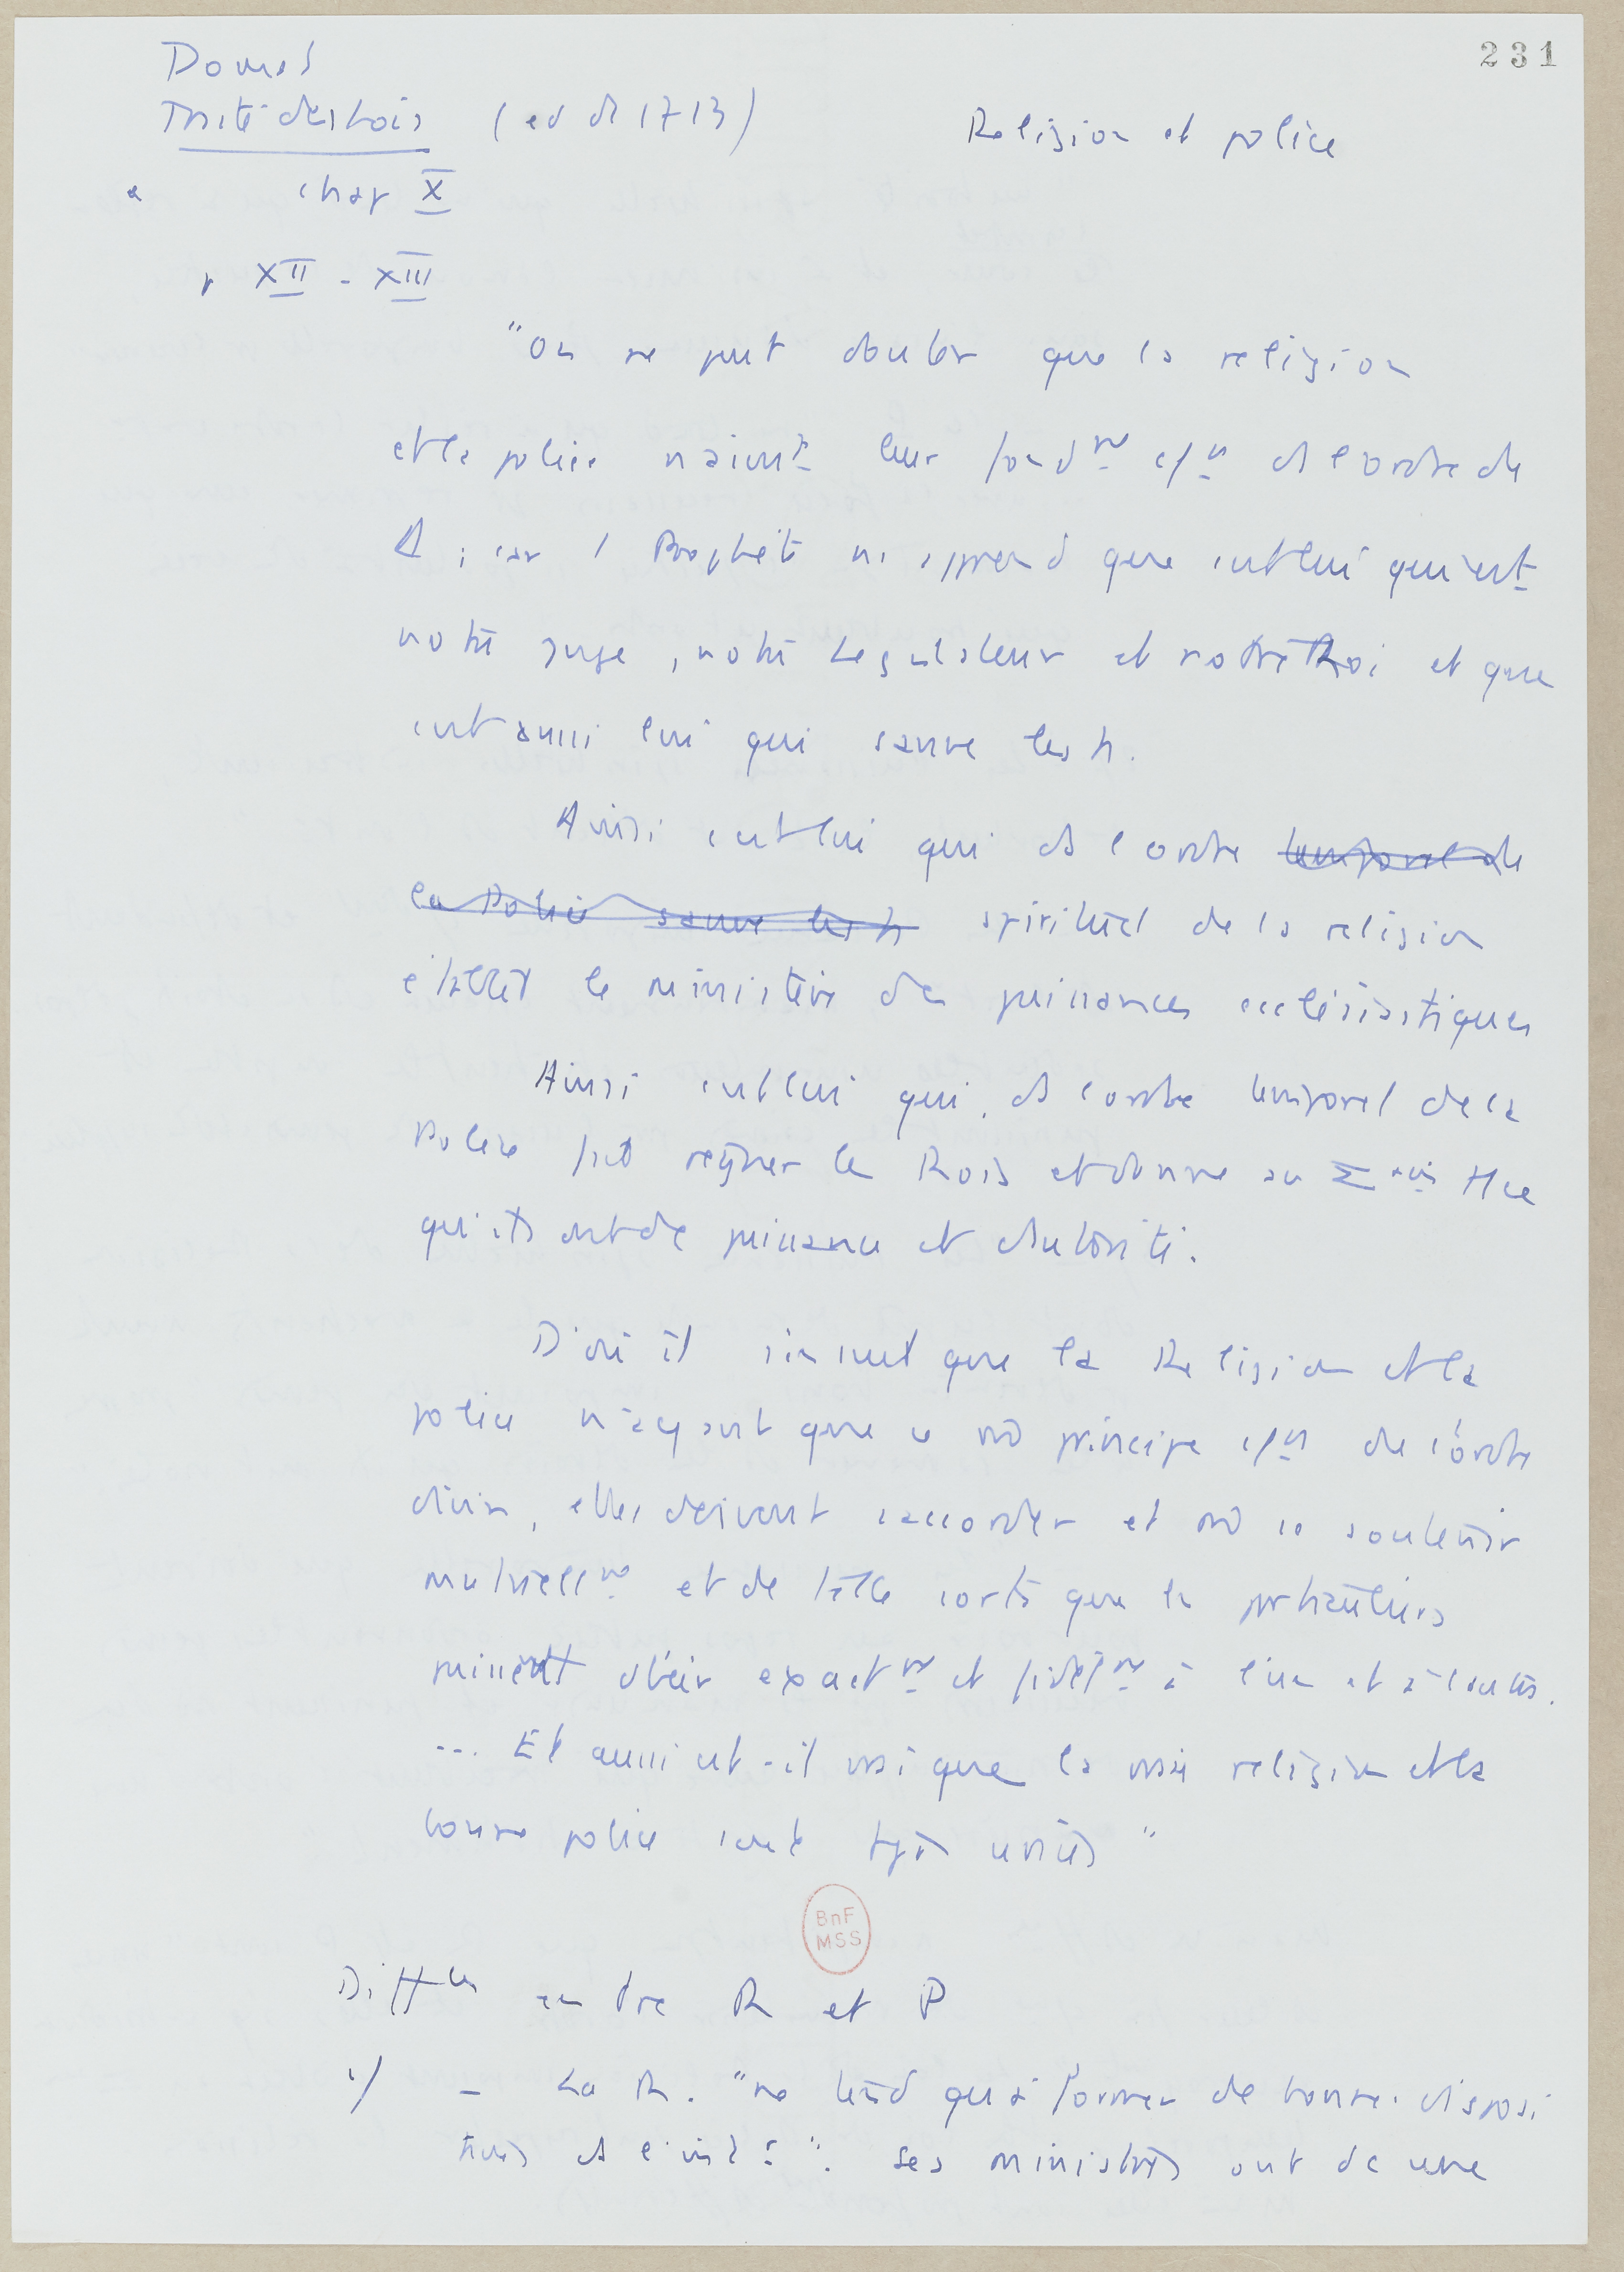 231
Domat
Traité des Lois (ed de 1713) Religion et police
chap X
p XII - XIII
"On ne peut douter que la religion
et la police n'aient leur fond.nt ds l'ordre de
D ; car le Prophète ns apprend que c'est lui qui est
notre juge, notre Législateur et notre Roi et que
c'est aussi lui qui sauve les h.
Ainsi c'est lui qui ds l'ordre temporel de
la Police sauve les h spirituel de la religion
établit le ministère des puissances ecclésiastiques
Ainsi c'est lui qui ds l'ordre temporel de la
Police fait regner les Rois et donne au Σ ains tt ce
qu'ils ont de puissance et d'autorité.
D'où il s'ensuit que la Religion et la
police n'ayant que ce m principe de l'ordre
divin, elles doivent s'accorder et m se soutenir
mutuellnt et de telle sorte que les particuliers
puissent obéir exactnt et fidèlnt à l'une et à l'autre.
... Et aussi est-il vrai que la vraie religion et la
bonne police sont tjrs unies"
BnF
MSS
Diffces entre R et P
1/ - La R. "ne tend qu'à former de bonnes disposi
tions ds l'int.r". Ses ministres ont de une